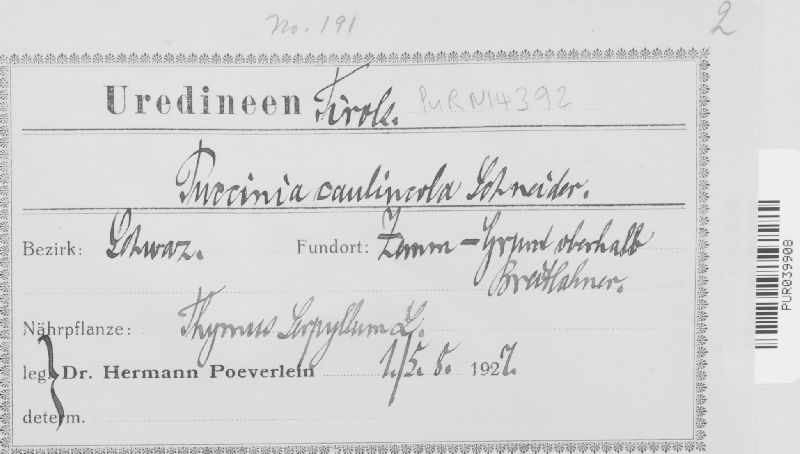 No. 191
2
Uredineen Tirols.
PUR N14392
Puccinia caulincola Schneider.
Bezirk: Schwaz. Fundort: Zemm-Grund oberhalb
Breitlahner.
Nährpflanze: Thymus Serpyllum L.
leg. Dr. Hermann Poeverlein 1./5. 8. 1927.
determ.
PUR039908